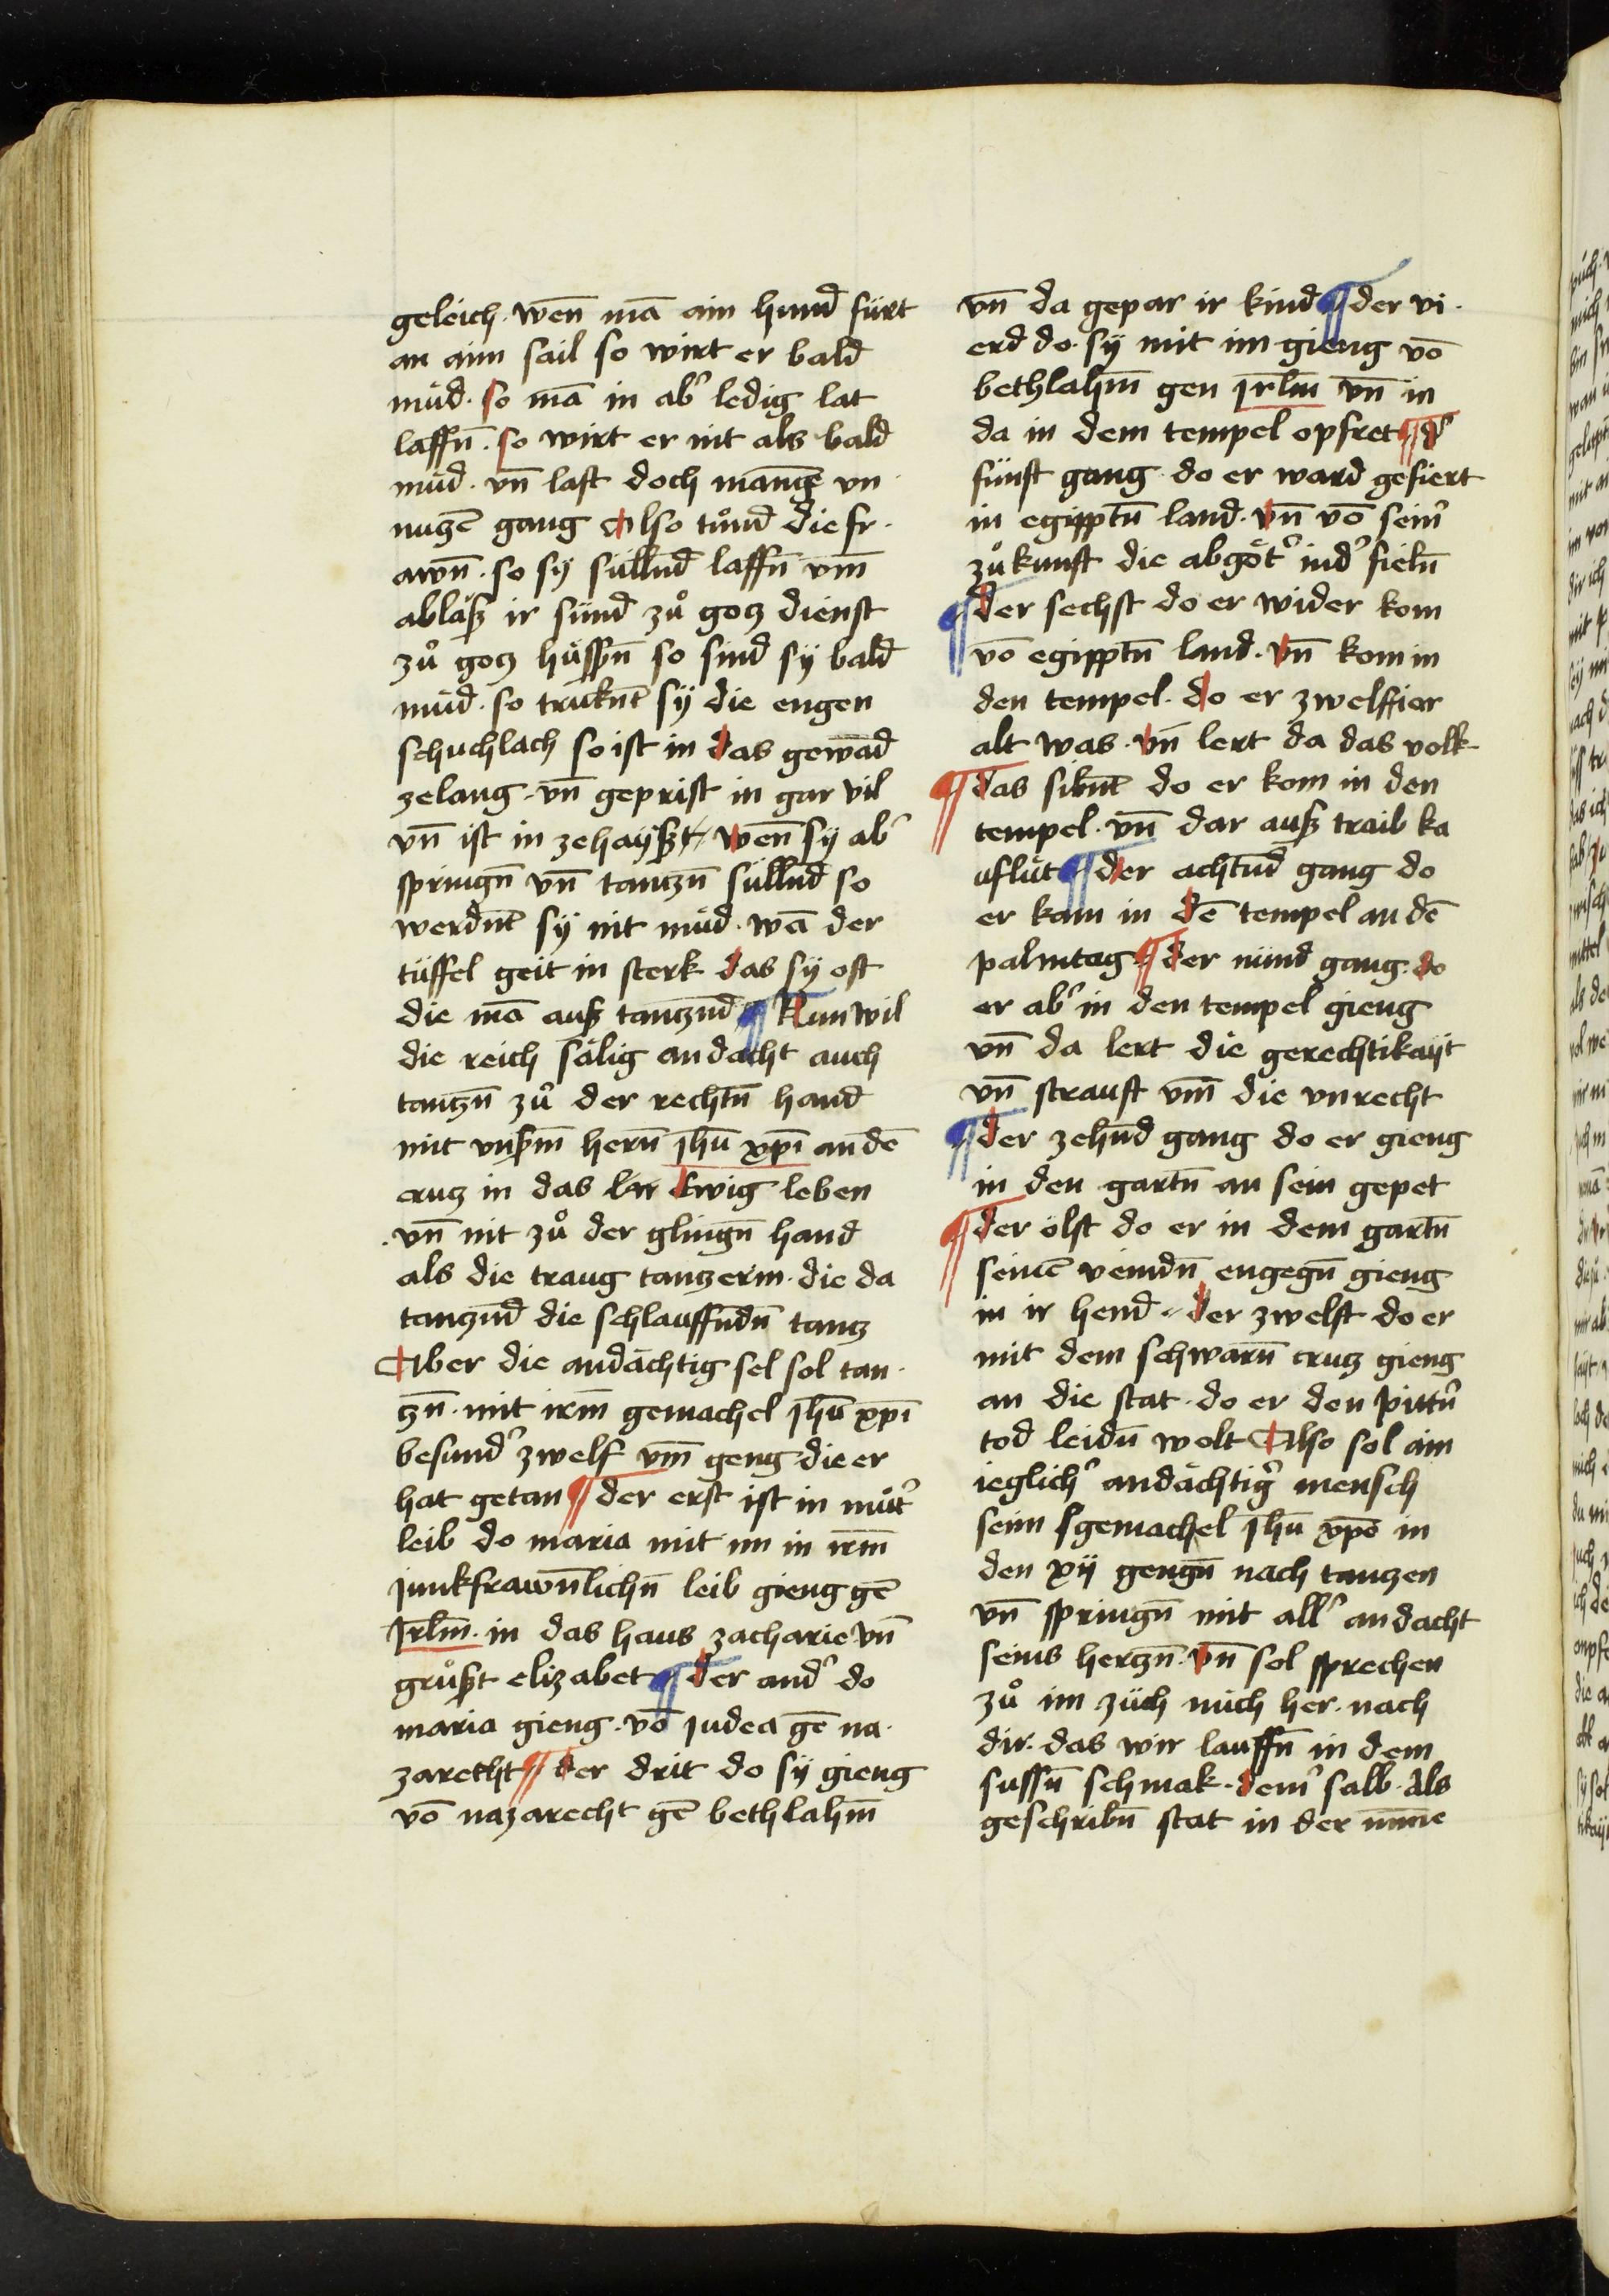 geleich. wen̄ mā ain hund fürt
an aim sail so wirt er bald
müd. so mā in abʾ ledig lat
laffn̄. so wirt er nit als bald
müd. vn̄ laft doch mangē vn
nuczē gang Also tůnd die fr.
awn̄. so sy sülln̄d laffn̄ vm̄
abläsz ir sünd zů gocz dienst
zů gocz hüssn̄ so sind sy bald
müd. so trukn̄t sy die engen
schuchlach so ist in das gewād
zelang. vn̄ geprist in gar vil
vn̄ ist in zehaysz wen̄ sy abʾ
springn̄ vn̄ tanczn̄ sülln̄d so
werdn̄t sy nit müd. wā der
tüffel geit in sterk das sy oft
die mā ausz tanczn̄d ¶ Nun wil
die reich sälig andacht auch
tanczn̄ zů der rechtn̄ hand
mit vnserm̄ hern̄ jhū xpī an dē
crucz in das Ewig leben
. vn̄ nit zů der glingn̄ hand
als die traug tanczerin. die da
tanczn̄d die schlauffn̄dn̄ tancz
Aber die andächtig sel sol tan.
czn̄. mit irm̄ gemachel jhū xpī
besundʾ zwelf vm̄ geng die er
hat getan ¶ der erst ist in mütʾ
leib do maria mit im in irm̄
junkfrawn̄lichn̄ leib gieng gē
Jrlm̄. in das haus zacharie vn̄
grůszt elizabet ¶ der andʾ do
maria gieng. vō judea gē na.
zaretht ¶ der drit do sy gieng
vō nazarecht gē bethlahm̄
vn̄ da gepar ir kind ¶ der vi.
erd do. sy mit im gieng vō
bethlahm̄ gen jrlm̄ vn̄ in
da in dem tempel opfret ¶ dʾ
fünft gang. do er ward gefiert
in egipptn̄ land. vn̄ vō seinʾ
zůkunft die abgötʾ nidʾ fieln̄
¶ der sechst do er wider kom
vō egipptn̄ land. vn̄ kom in
den tempel. do er zwelffier
alt was. vn̄ lert da das volk.
¶ das sibn̄t do er kom in den
tempel. vn̄ dar ausz traib ka
uflüt ¶ der achtn̄d gang do
er kam in dē tempel an dē
palmtag ¶ der nünd gang. do
er abʾ in den tempel gieng
vn̄ da lert die gerechtikayt
vn̄ strauft vm̄ die vnrecht
¶ der zehn̄d gang do er gieng
in den gartn̄ an sein gepet
¶ der ölft do er in dem gartn̄
seinē veindn̄ engegn̄ gieng
in ir hend. der zwelft do er
mit dem schwarn̄ crucz gieng
an die stat. do er den pittn̄ʾ
tod leidn̄ wolt Also sol ain
ieglichʾ andächtigʾ mensch
seim gemachel jhū xpō in
den xij gengn̄ nach tanczen
vn̄ springn̄ mit allʾ andacht
seins herczn̄. vn̄ sol sprechen
zů im züch mich her. nach
dir. das wir lauffn̄ in dem
sussn̄ schmak. deinʾ salb. Als
geschribn̄ stat in der minne